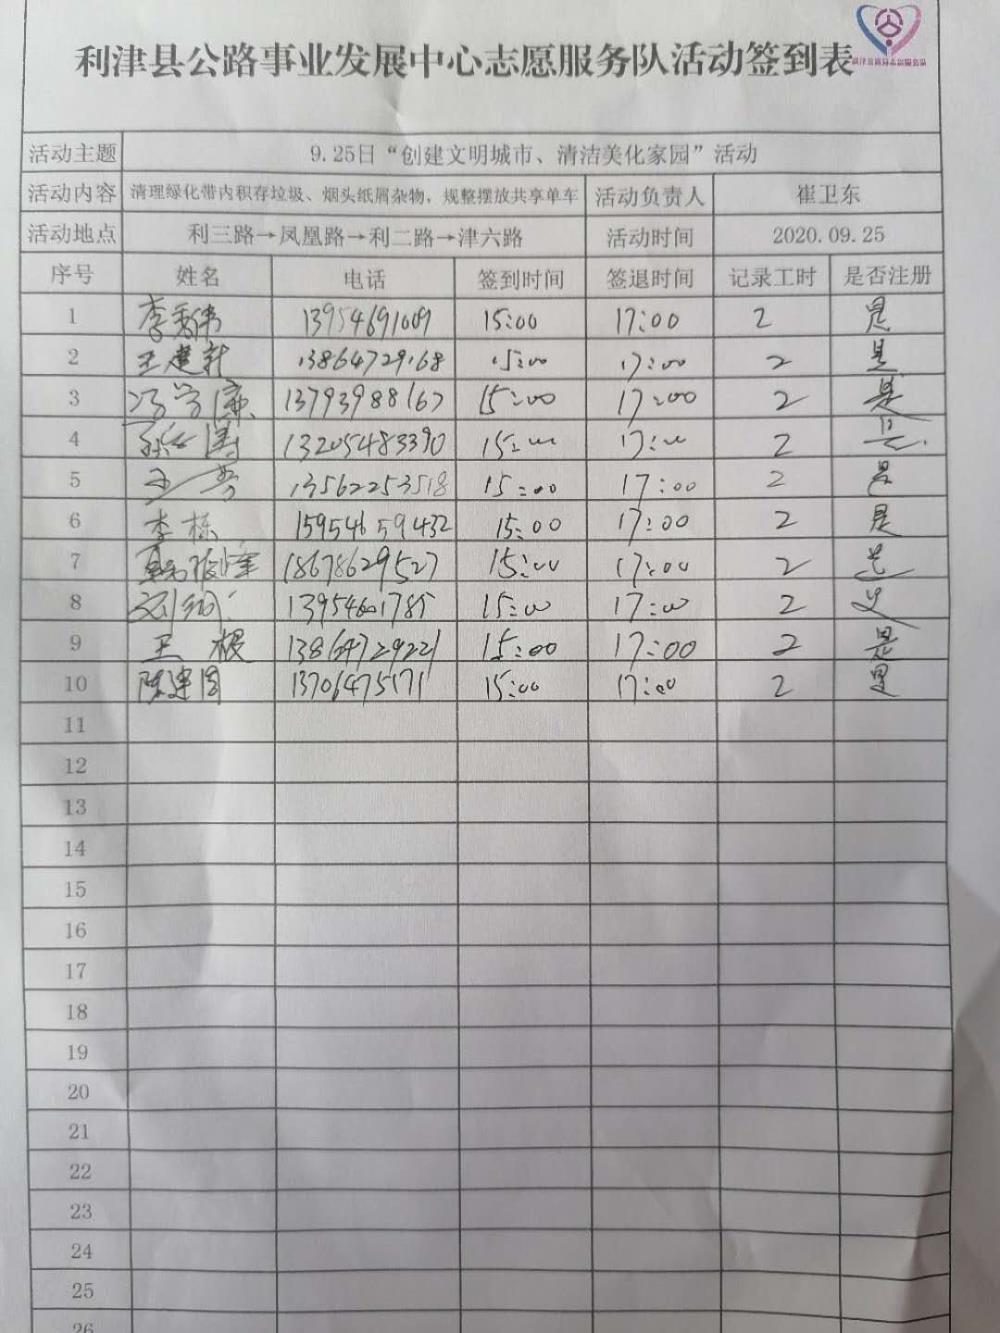 利津县公路事业发展中心志愿服务队活动签到表
活动主题 9.25日“创建文明城市、清洁美化家园”活动
活动内容 清理绿化带内积存垃圾、烟头纸屑杂物，规整摆放共享单车 活动负责人 崔卫东
活动地点 利三路→凤凰路→利二路→津六路 活动时间 2020.09.25
序号 姓名 电话 签到时间 签退时间 记录工时 是否注册
1 李秀伟 13954691009 15:00 17:00 2 是
2 王建新 13864729168 15:00 17:00 2 是
3 冯学廉 13793988167 15:00 17:00 2 是
4 13205483390 15:00 17:00 2 是
5 13562253518 15:00 17:00 2 是
6 李栋 15954659432 15:00 17:00 2 是
7 18678629527 15:00 17:00 2 是
8 13954601785 15:00 17:00 2
9 王根 13864729221 15:00 17:00 2 是
10 陈建国 13706475171 15:00 17:00 2 是
11
12
13
14
15
16
17
18
19
20
21
22
23
24
25
26